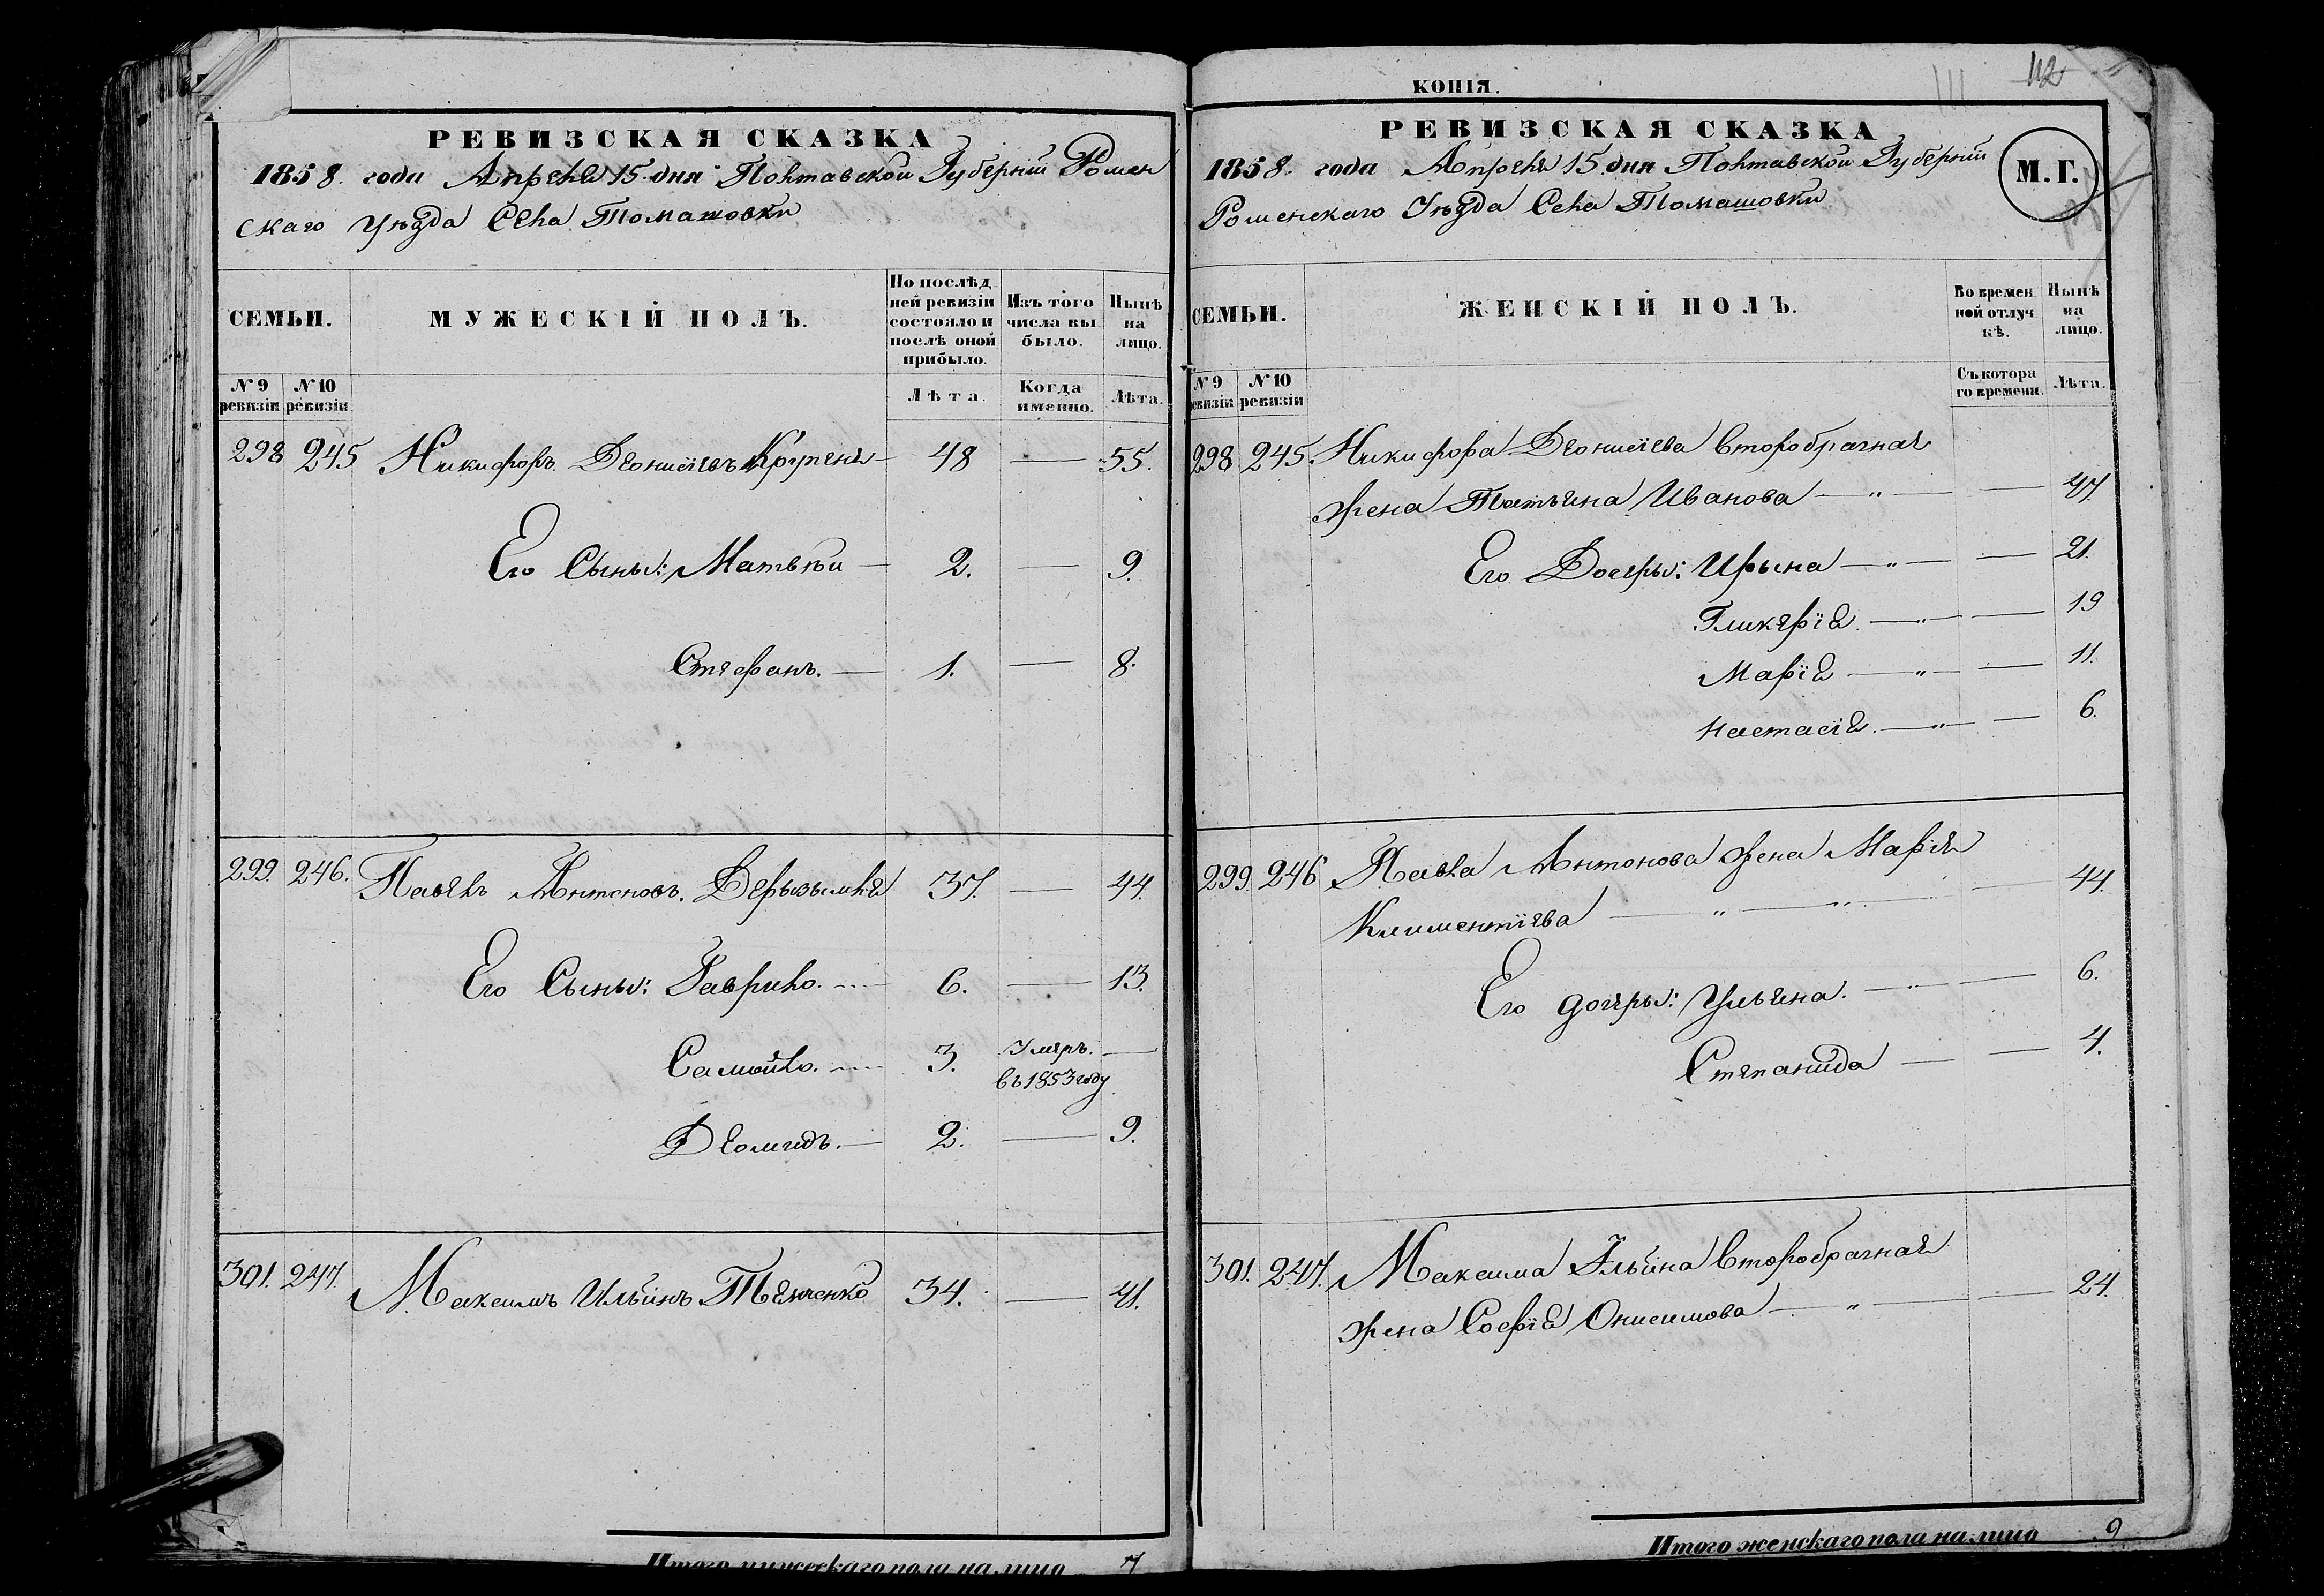 РЕВИЗСКАЯ СКАЗКА
1858. года Апреля 15. дня Полтавской Губерніи Ромен
скаго Уѣзда Села Томашовки
СЕМЬИ.
МУЖЕСКІЙ ПОЛЪ.
По послѣд
ней ревизіи
состояло и
послѣ оной
прибыло.
Изъ того
числа вы
было.
Нынѣ
на
лицо.
№ 9 ревизіи
№ 10 ревизіи
Лѣта.
Когда именно.
Лѣта.
298 245 Никифоръ Деонисіевъ — 48 — 55.
Его Сыны: Матвѣй — 2. — 9.
Стефанъ. — 1. — 8.
299. 246. Павелъ Антоновъ. 37. — 44.
Его Сыны: Гаврило. 6. — 13.
Самойло. 3. Умеръ. —
въ 1853 году
Деомидъ. — 2. — 9.
301. 247. Максимъ Ильинъ 34. — 41.
Итого мужескаго пола на лицо 7
КОПІЯ.
112
РЕВИЗСКАЯ СКАЗКА
1858. года Апреля 15. дня Полтавской Губерніи
Роменскаго Уѣзда Села Томашовки
М.Г.
СЕМЬИ.
ЖЕНСКІЙ ПОЛЪ.
Во времен
ной отлуч
кѣ.
Нынѣ
на
лицо.
№ 9 ревизіи
№ 10 ревизіи
Съ котора
го времени.
Лѣта.
298 245. Никифора Деонисіева второбрачная
жена Татьяна Иванова — " — — 47.
Его Дочеры: Ирына — " — — 21.
Гликерія. — " — — 19
Марія — " — — 11.
Настасія. — " — — 6.
299. 246 Павла Антонова жена Марія
Климентіева — " — " — — 44.
Его дочеры: Ульяна. — " — — 6.
Степанида — — 4.
301. 247. Максима Ильина второбрачная
жена Софія Онисимова — " — — 24.
Итого женскаго пола на лицо 9